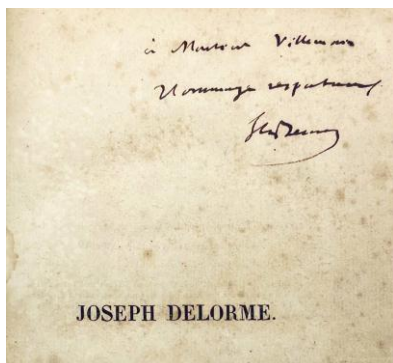 à Monsieur Villemain
Hommage respectueux
Ste Beuve
JOSEPH DELORME.